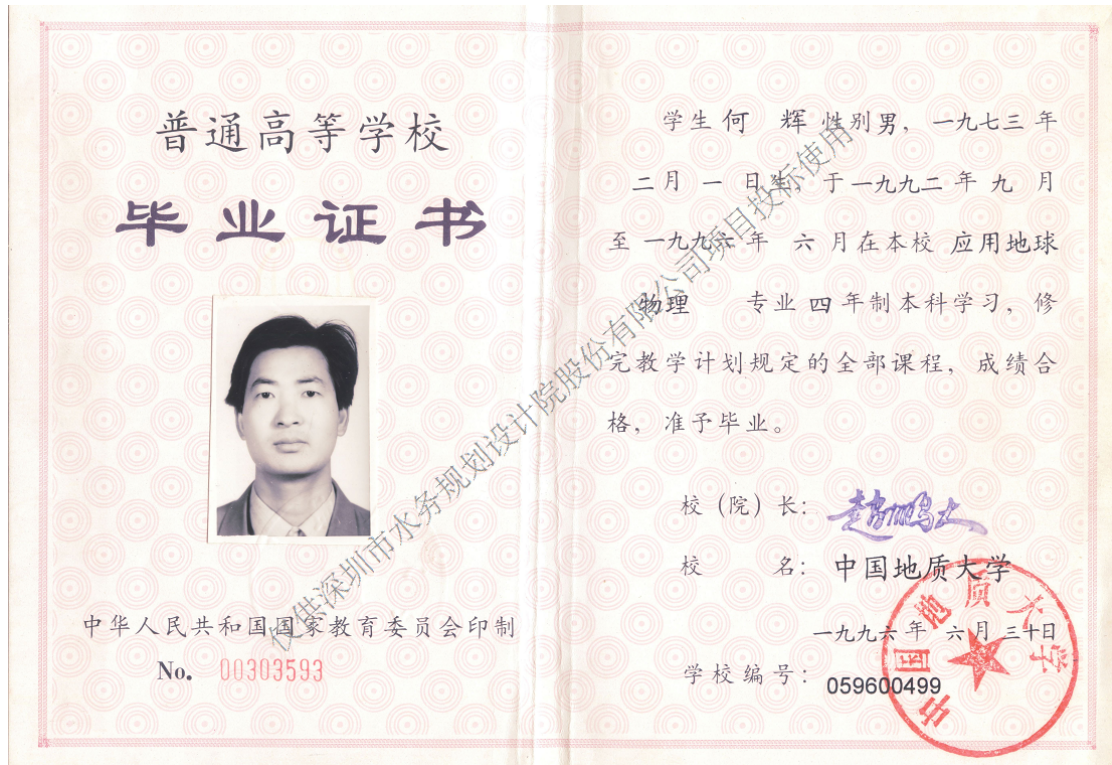 普通高等学校
毕业证书
中华人民共和国国家教育委员会印制
No. 00303593
学生何 辉 性别男，一九七三年
二月 一 日生 于一九九二年 九 月
至 一九九六年 六 月在本校 应用地球
物理 专业 四 年制本科学习，修
完教学计划规定的全部课程，成绩合
格，准予毕业。
校（院）长：赵鹏大
校 名：中国地质大学
一九九六年 六月 三十日
学校编号：059600499
中国地质大学
仅供深圳市水务规划设计院股份有限公司项目投标使用